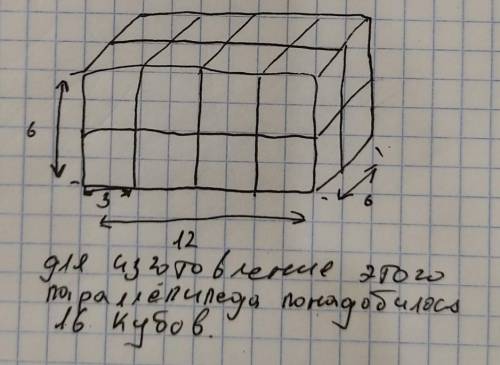 6
3
12
6
для изготовление этого
параллепипеда понадобилось
16 кубов.